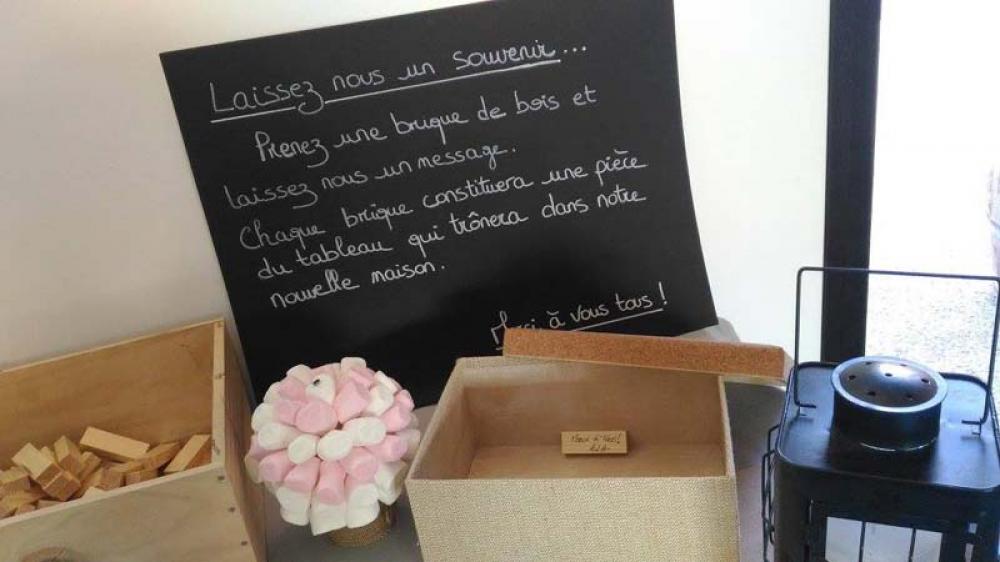 Laissez nous un souvenir...
Prenez une brique de bois et
laissez nous un message.
Chaque brique constituera une pièce
du tableau qui trônera dans notre
nouvelle maison.
Merci à vous tous !